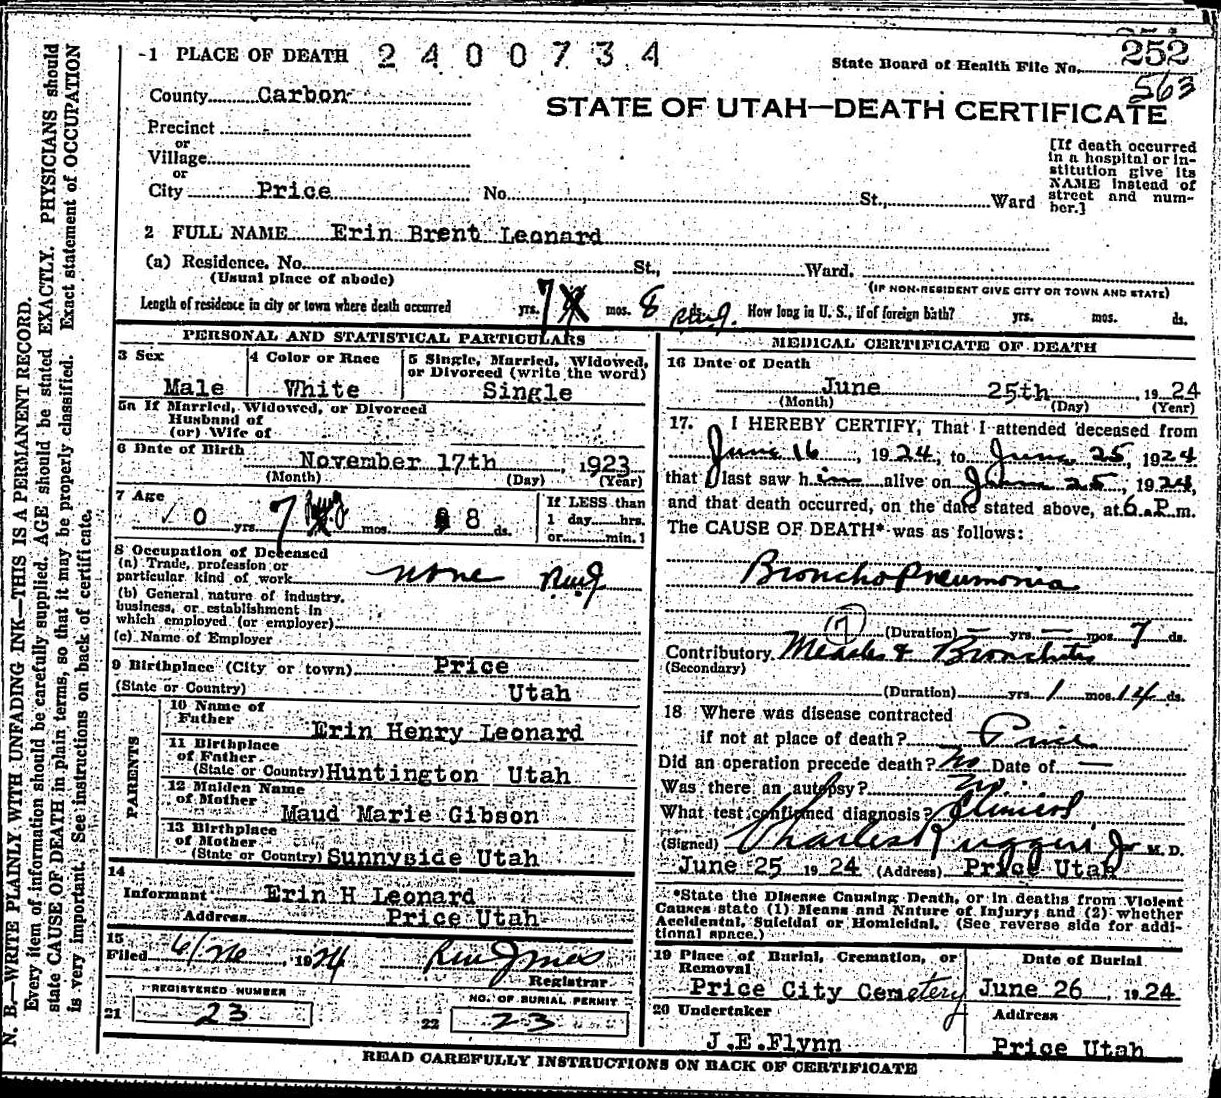 1 PLACE OF DEATH 2400734
State Board of Health File No. 252
563
County Carbon
STATE OF UTAH—DEATH CERTIFICATE
Precinct
or
Village
or
City Price No. St., Ward
[If death occurred in a hospital or institution give its NAME instead of street and number.]
2 FULL NAME Erin Brent Leonard
(a) Residence. No. St., Ward.
(Usual place of abode) (IF NON-RESIDENT GIVE CITY OR TOWN AND STATE)
Length of residence in city or town where death occurred yrs. 7 mos. 8 How long in U. S., if of foreign birth? yrs. mos. ds.
PERSONAL AND STATISTICAL PARTICULARS
3 Sex Male
4 Color or Race White
5 Single, Married, Widowed, or Divorced (write the word) Single
5a If Married, Widowed, or Divorced
Husband of
(or) Wife of
6 Date of Birth November 17th, 1923
(Month) (Day) (Year)
7 Age 0 yrs. 7 mos. 8 ds.
If LESS than
1 day hrs.
or min.
8 Occupation of Deceased
(a) Trade, profession or
particular kind of work none
(b) General nature of industry,
business, or establishment in
which employed (or employer)
(c) Name of Employer
9 Birthplace (City or town) Price
(State or Country) Utah
PARENTS
10 Name of Father Erin Henry Leonard
11 Birthplace of Father
(State or Country) Huntington Utah
12 Maiden Name of Mother Maud Marie Gibson
13 Birthplace of Mother
(State or Country) Sunnyside Utah
14
Informant Erin H Leonard
Address Price Utah
15
Filed 6/26, 1924
Registrar
REGISTERED NUMBER
21 23
NO. OF BURIAL PERMIT
22 23
MEDICAL CERTIFICATE OF DEATH
16 Date of Death
June 25th, 1924
(Month) (Day) (Year)
17. I HEREBY CERTIFY, That I attended deceased from
June 16, 1924, to June 25, 1924
that I last saw him alive on June 25, 1924,
and that death occurred, on the date stated above, at 6 P.m.
The CAUSE OF DEATH* was as follows:
Broncho Pneumonia
7
(Duration) — yrs. — mos. 7 ds.
Contributory Measles & Bronchitis
(Secondary)
(Duration) yrs. 1 mos. 14 ds.
18 Where was disease contracted
if not at place of death? Price
Did an operation precede death? No Date of —
Was there an autopsy? no
What test confirmed diagnosis? Clinical
(Signed) Charles Ruggeri Jr M. D.
June 25 1924 (Address) Price Utah
*State the Disease Causing Death, or in deaths from Violent
Causes state (1) Means and Nature of Injury; and (2) whether
Accidental, Suicidal or Homicidal. (See reverse side for addi-
tional space.)
19 Place of Burial, Cremation, or Removal
Price City Cemetery
Date of Burial
June 26, 1924
20 Undertaker
J.E.Flynn
Address
Price Utah
READ CAREFULLY INSTRUCTIONS ON BACK OF CERTIFICATE
N. B.—WRITE PLAINLY WITH UNFADING INK—THIS IS A PERMANENT RECORD.
Every item of information should be carefully supplied. AGE should be stated EXACTLY. PHYSICIANS should
state CAUSE OF DEATH in plain terms, so that it may be properly classified. Exact statement of OCCUPATION
is very important. See instructions on back of certificate.